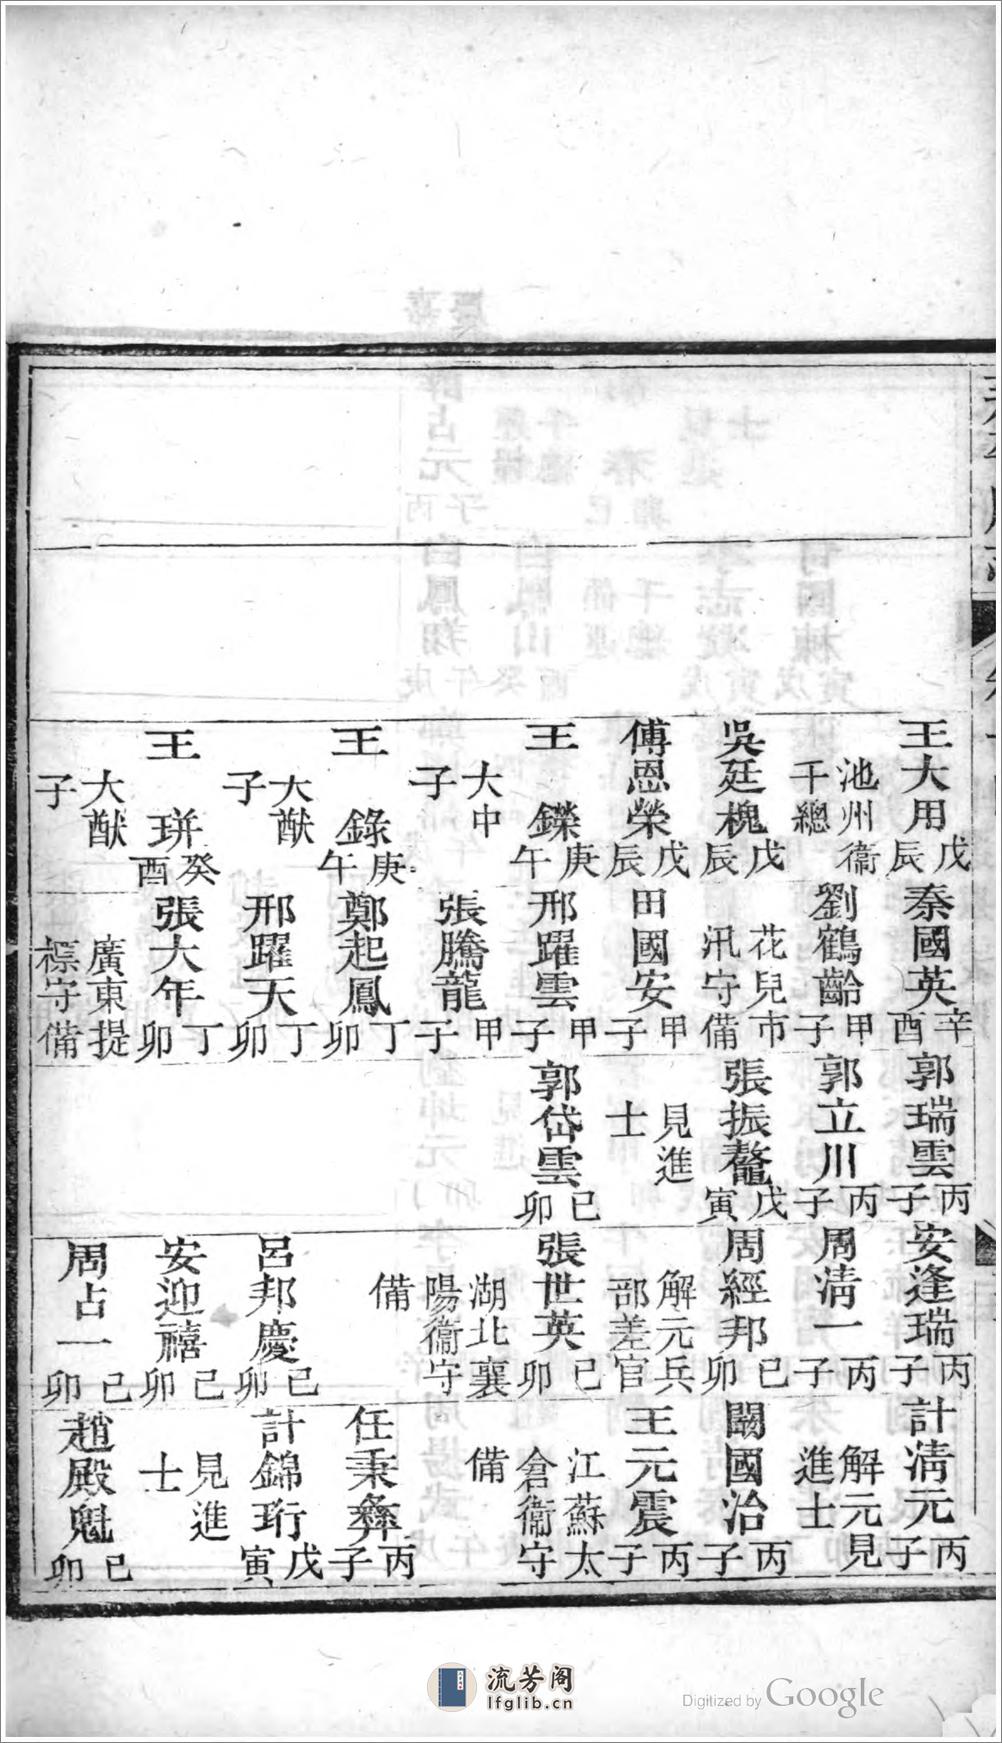 王大用戊辰
池州衞千總
吳廷槐戊辰
傅恩榮戊辰
王鑠庚午
大中子
王錄庚午
大猷子
王 癸酉
大猷子
秦國英辛酉
劉鶴齡甲子
花兒市汛守備
田國安甲子
邢躍雲甲子
張騰龍甲子
鄭起鳳丁卯
邢躍天丁卯
張大年丁卯
廣東提標守備
郭瑞雲丙子
郭立川丙子
張振鼇戊寅
見進士
郭岱雲己卯
安逢瑞丙子
周清一丙子
周經邦己卯
解元兵部差官
張世英己卯
湖北襄陽衞守備
呂邦慶己卯
安迎禧己卯
周占一己卯
計清元丙子
解元見進士
闞國治丙子
王元震丙子
江蘇太倉衞守備
任秉彝丙子
計錦珩戊寅
見進士
趙殿魁己卯
流芳阁
lfglib.cn
Digitized by Google